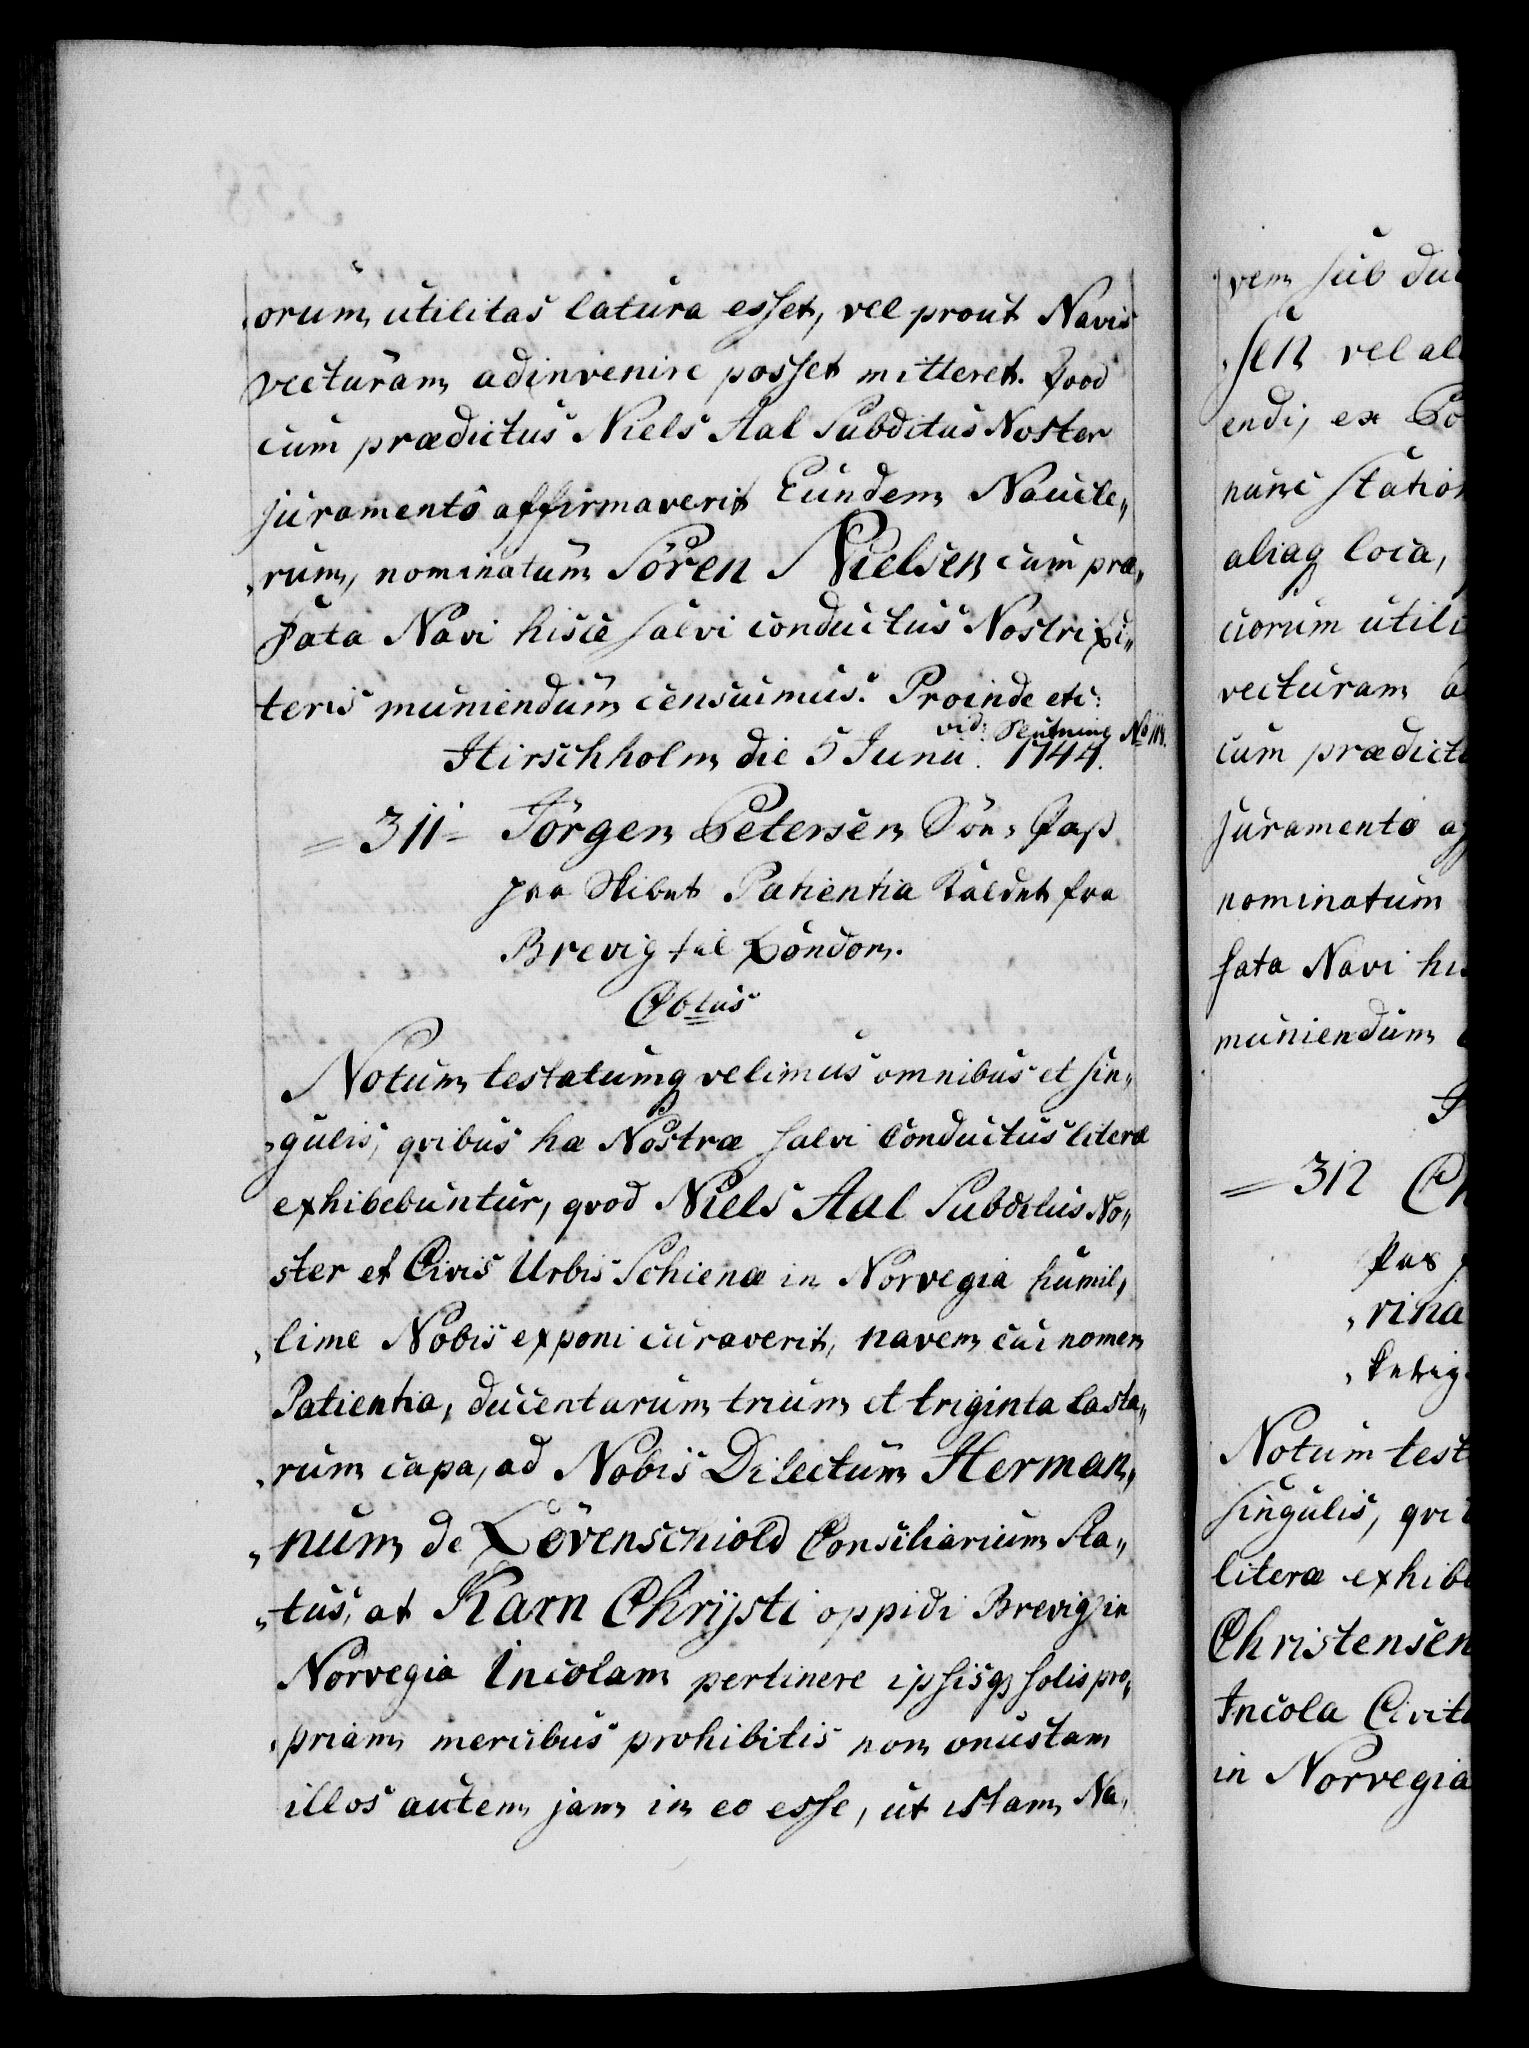 „orum utilitas latura esset, vel prout Navis
vecturam adinvenire posset mitteret. Qvod
cum prædictus Niels Aal Subditus Noster
juramento affirmaverit Eundem Naucle„
„rum, nominatum Sören Nielsen cum præ„
fata Navi hisce salvi conductus Nostri Li„
teris muniendum censuimus. Proinde etc:
vid: Slutning No 114.
Hirschholm die 5 Junii. 1744.
= 311 = Jörgen Petersen Söe-Pass
paa Skibet Patientia kaldet fra
Brevig til London.
Oblus
Notum testatumq velimus omnibus et sin„
„gulis, qvibus hæ Nostræ salvi Conductus literæ
exhibebuntur, qvod Niels Aal Subditus No„
ster et Civis Urbis Schienæ in Norvegia humil„
„lime Nobis exponi curaverit, navem cui nomen
Patientia, ducentarum trium et triginta lasta„
„rum capa, ad Nobis Dilectum Herman„
„num de Lövenschiold Consiliarium Sta„
„tus, at Karn Chrijsti oppidi Brevig in
Norvegia Incolam pertinere ipsisq solis pro„
„priam mercibus prohibitis non onustam
illos autem jam in eo esse, ut istam Na„
vem sub duc
„sen vel ali
endi, ex Po
nunc Station
aliaq loca,
ciorum utili
vecturam a
cum prædictu
juramento af
nominatum
fata Navi his
muniendum
= 312 Ch
Pas
„rina
Notum test
singulis, qvi
literæ exhibe
Christensen
Incola Civita
in Norvegia